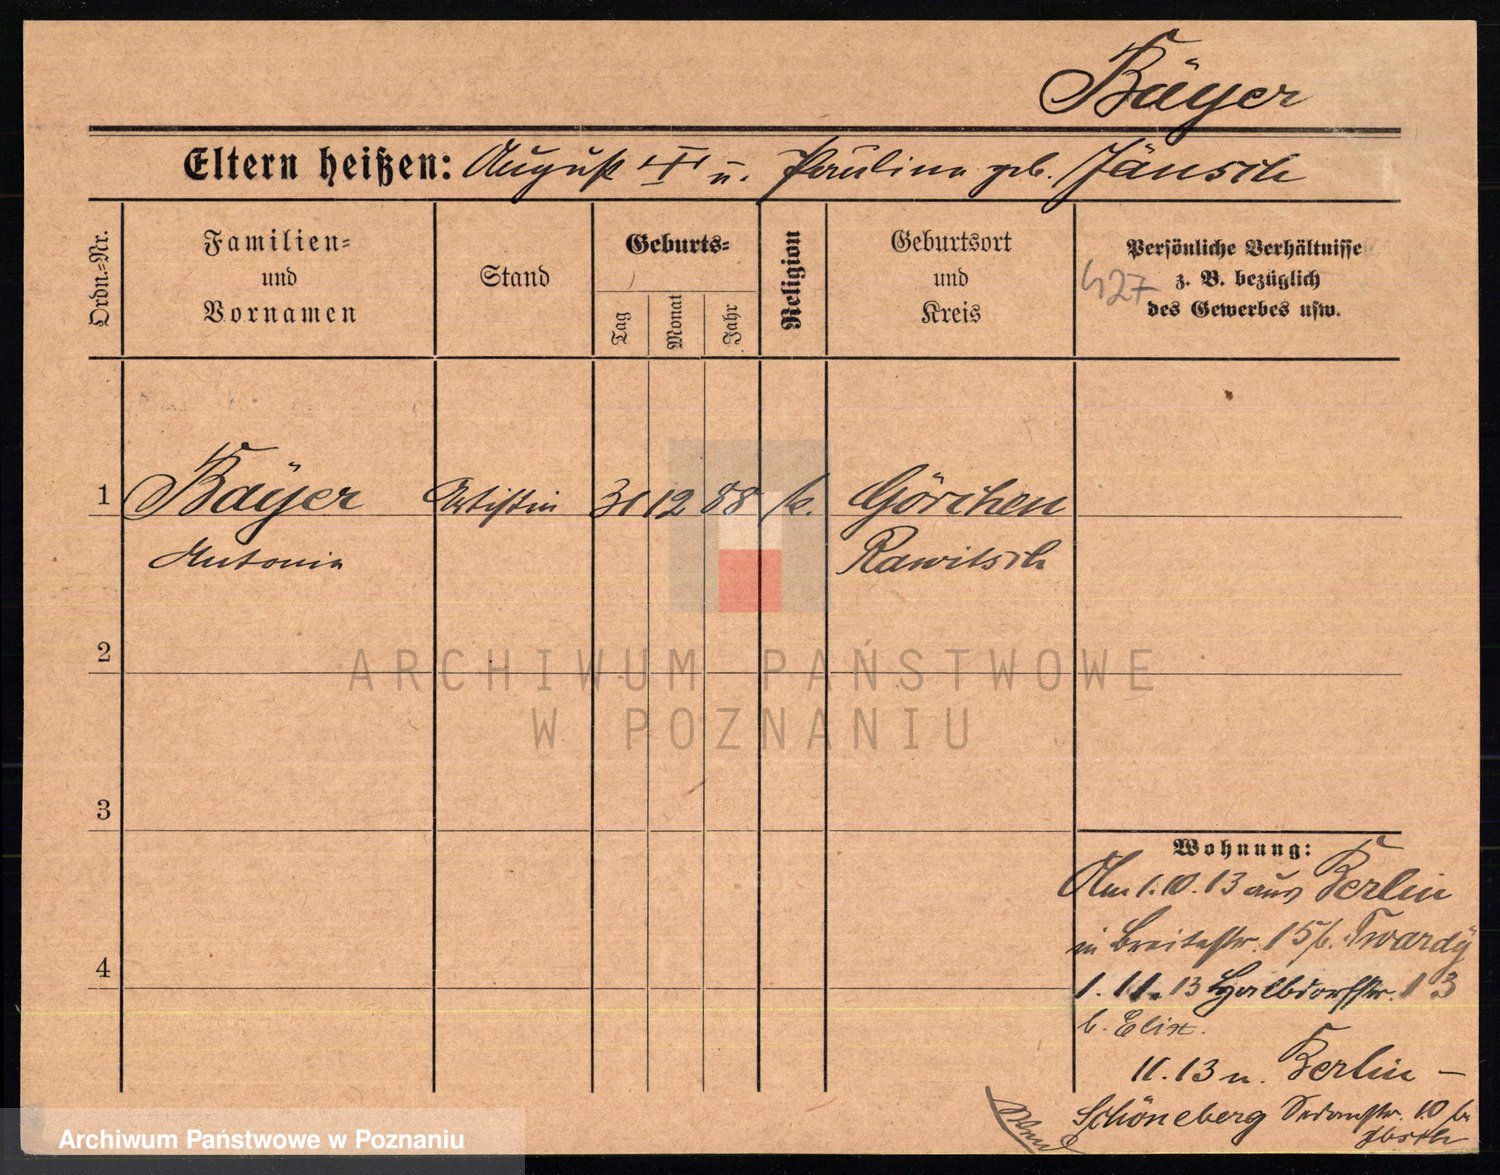 Bäyer
Eltern heißen: August u. Paulina geb. Jänsch
Ordn.=Nr.
Familien=
und
Vornamen
Stand
Geburts=
Tag
Monat
Jahr
Religion
Geburtsort
und
Kreis
Persönliche Verhältnisse
z. B. bezüglich
des Gewerbes usw.
427
1 Bäyer Artistin 31 12 88 k. Görchen
Antonia Rawitsch
2
ARCHIWUM PAŃSTWOWE
W POZNANIU
3
Wohnung:
Am 1.10.13 aus Berlin
in Breitestr. 15 b. Twardy
4
1.11.13 Halbdorfstr. 13
b.
11.13 n. Berlin –
Schöneberg Sedanstr. 10 b.
Archiwum Państwowe w Poznaniu